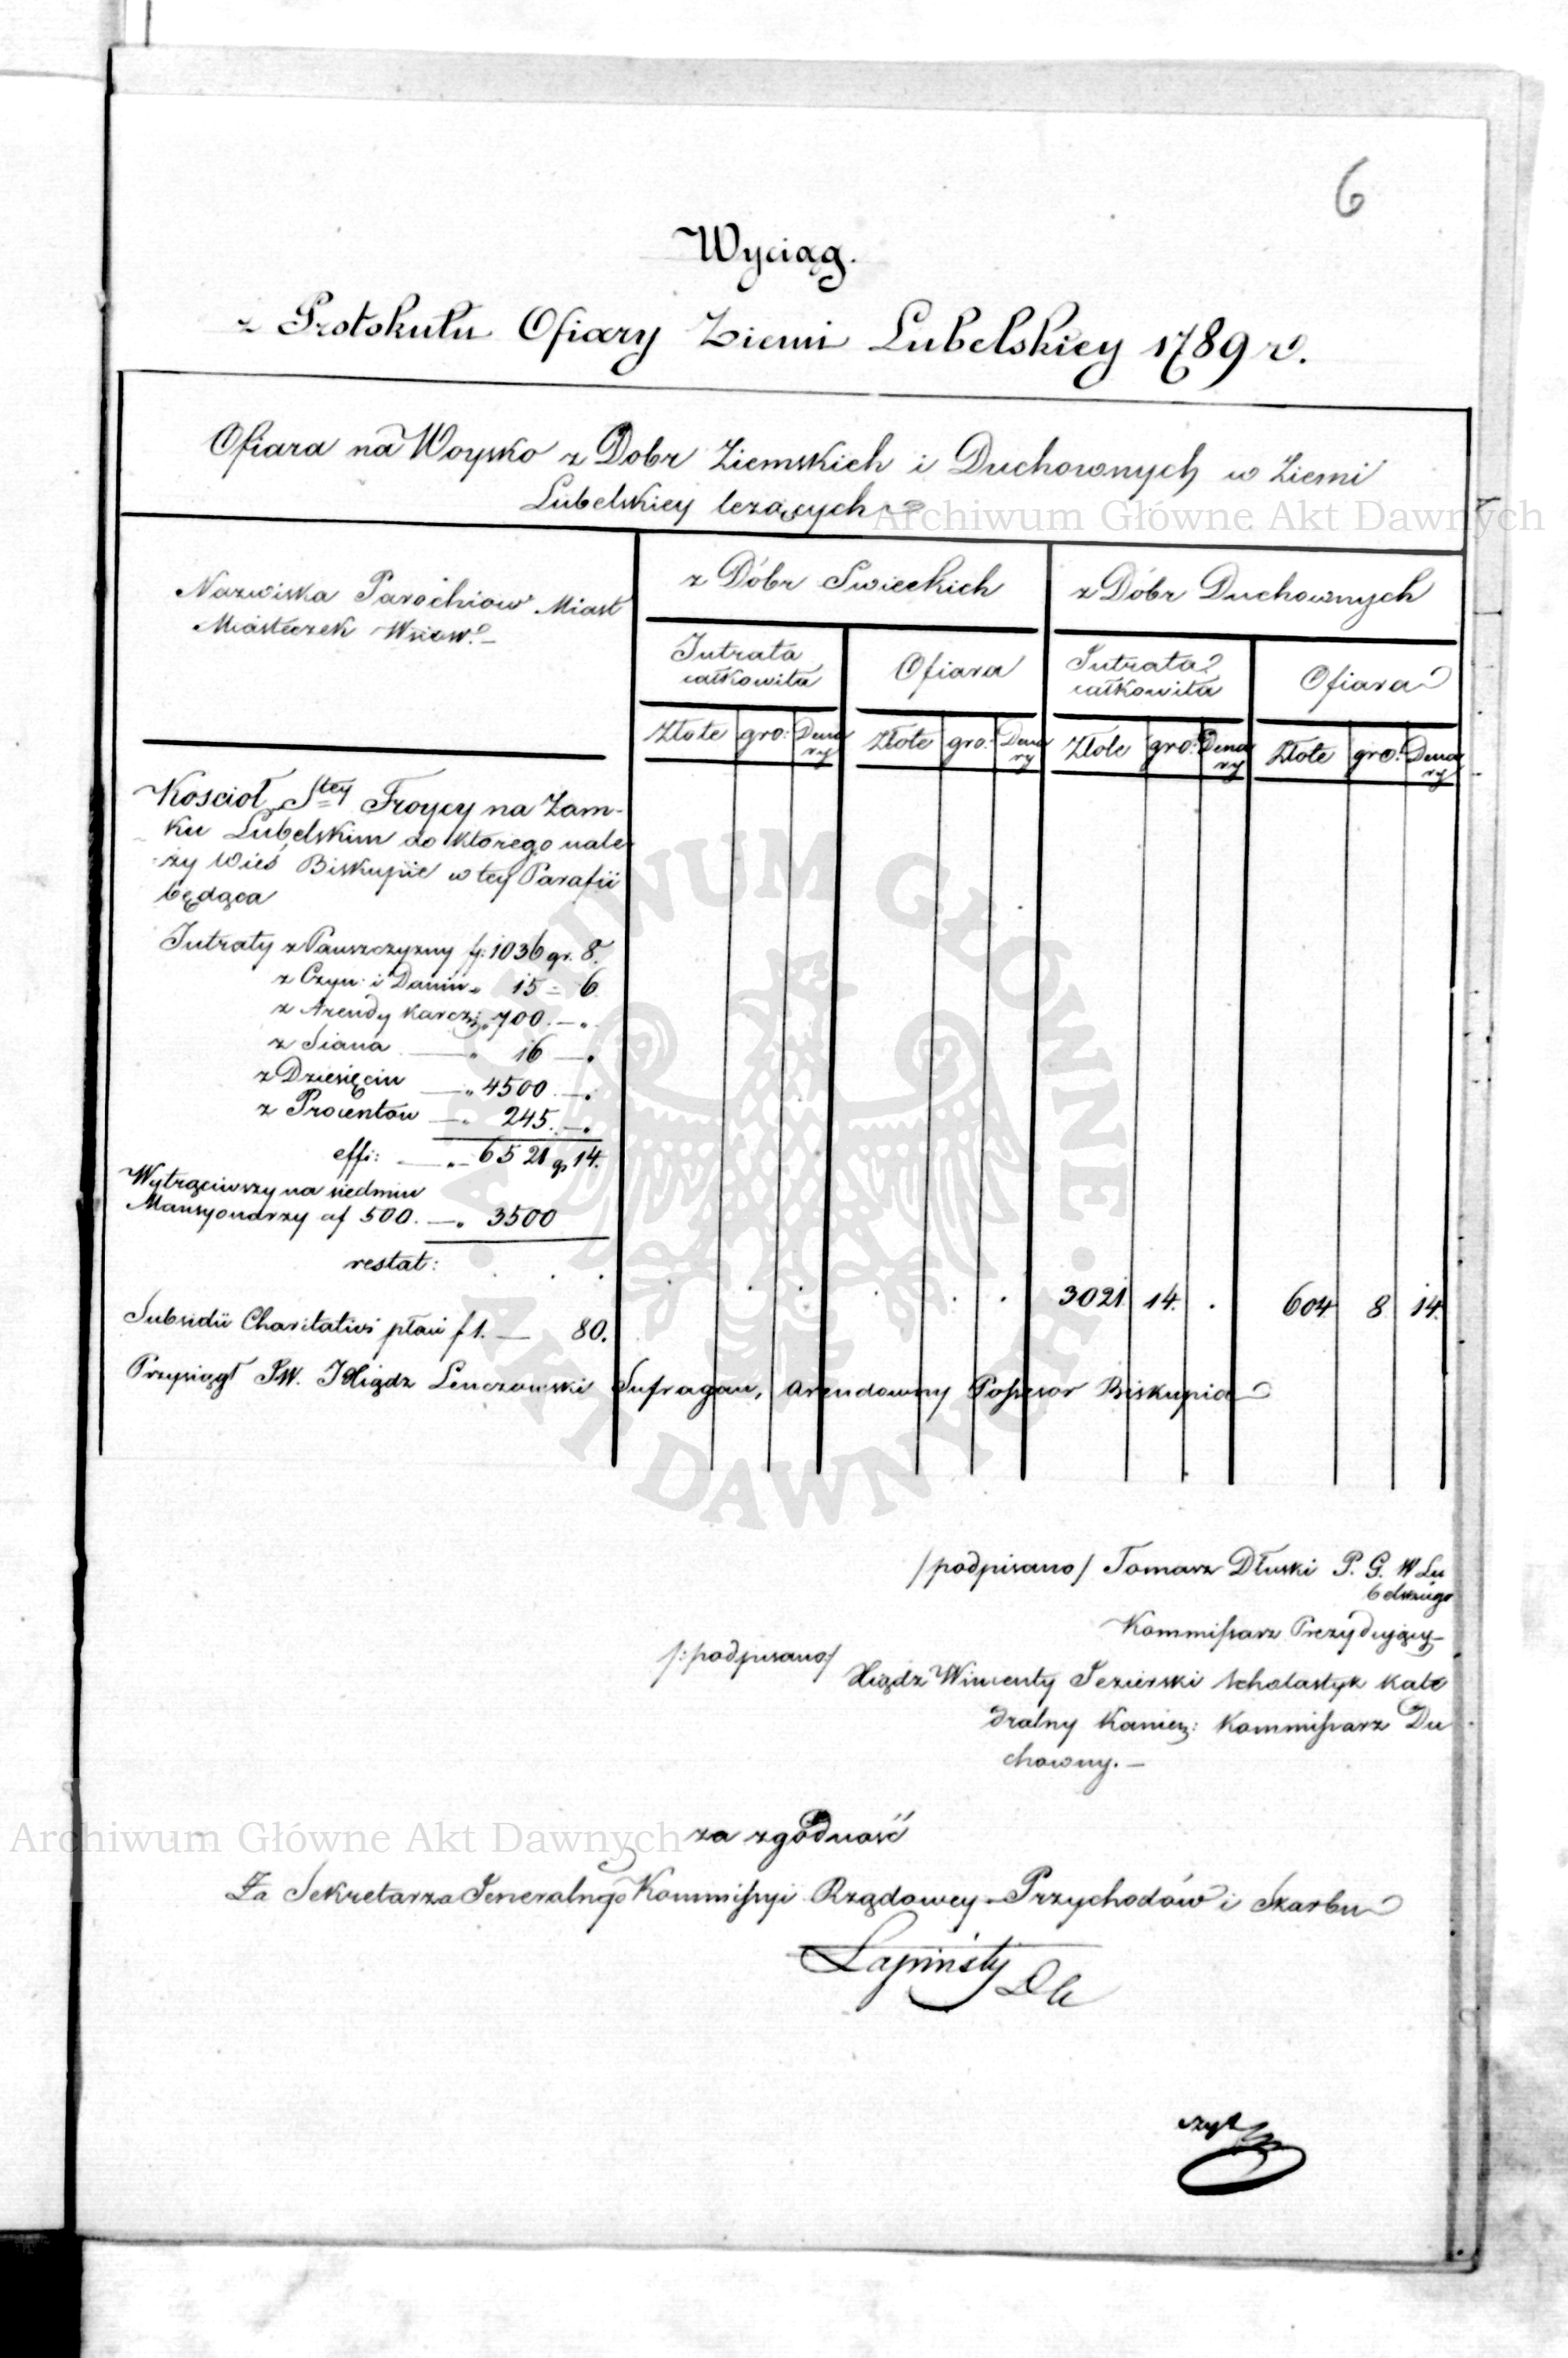 6
Wyciąg.
z Protokułu Ofiary Ziemi Lubelskiey 1789 r.
Ofiara na Woysko z Dobr Ziemskich i Duchownych w Ziemi
Lubelskiey leżących
Archiwum Główne Akt Dawnych
Nazwiska Parochiow Miast
Miasteczek Wsiow.
z Dóbr Swieckich
z Dóbr Duchownych
Intrata całkowita
Ofiara
Intrata całkowita
Ofiara
Złote gro: Denary Złote gro: Denary Złote gro: Denary Złote gro: Denary
Kościoł Stey Troycy na Zam-
ku Lubelskim do ktorego nale-
ży Wieś Biskupie w tey Parafii
będąca
Intraty z Pauszczyzny f: 1036 gr. 8.
z Czyn: i Danin „ 15 = 6.
z Arendy karcz: „ 700. — „
z Siana — „ 16 — „
z Dziesięcin — „ 4500 — „
z Procentow — „ 245. — „
effi: — „ 6521 g 14.
Wytrąciwszy na siedmiu
Mansyonarzy af 500. — „ 3500
restat: . . . . . . . . . 3021. 14. . 604 8 14.
Subsidii Charitativi płaci f 1. — 80.
Przysiągł JW. JXiądz Lenczowski Sufragan, Arendowny Possesor Biskupia
/podpisano/ Tomasz Dłuski P. G. W Lu
belskiego
Kommissarz Prezydujący
/:podpisano/
Xiądz Wincenty Jezierski Scholastyk kate
dralny Kamien: Kommissarz Du
chowny. —
za zgodność
Archiwum Główne Akt Dawnych
Za Sekretarza Generalnego Kommissyi Rządowey Przychodów i Skarbu
Łapinsky
ARCHIWUM GŁÓWNE • AKT DAWNYCH •